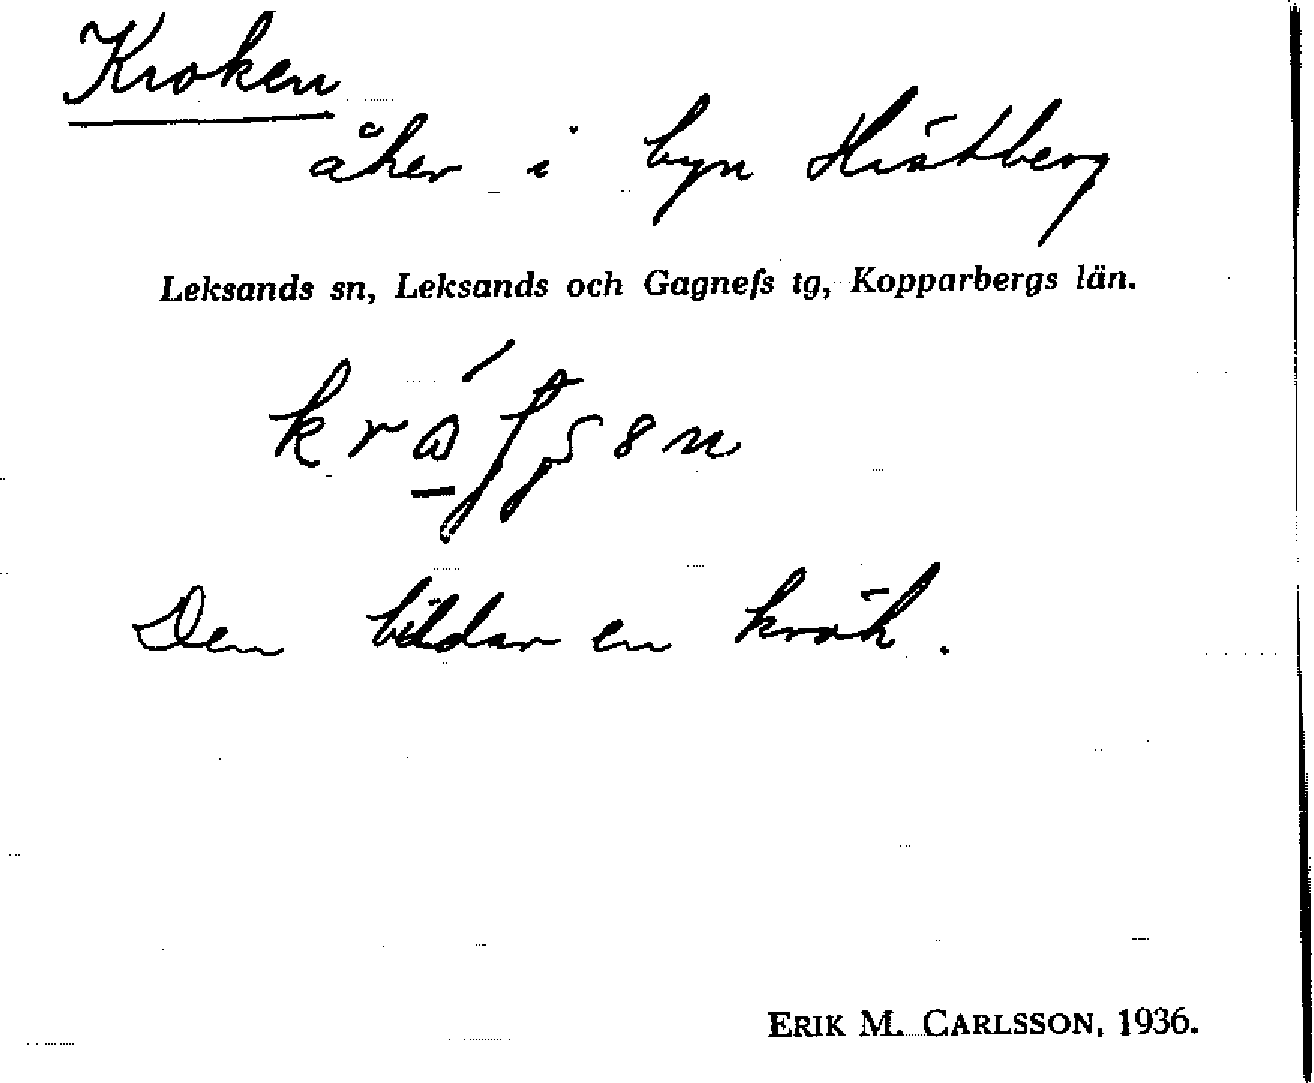 Kroken
åker i byn Hästberg
Leksands sn, Leksands och Gagnefs tg, Kopparbergs län.
Den bildar en krök.
ERIK M. CARLSSON, 1936.